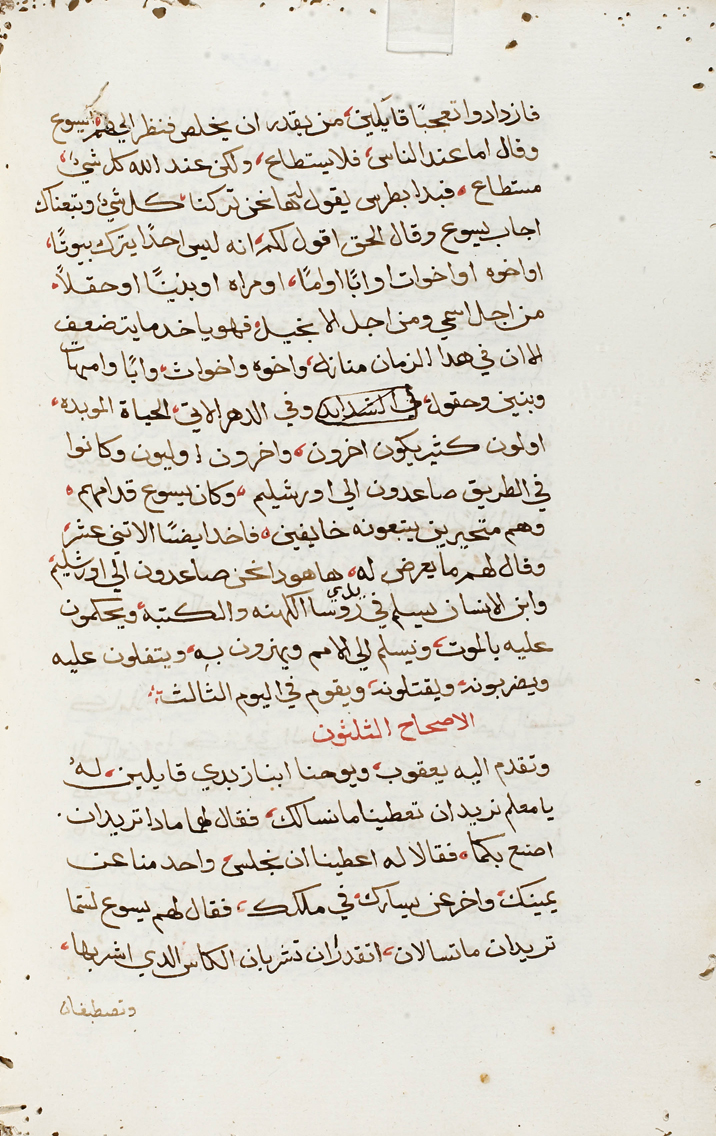 فازدادوا تعجبًا قايلين، من يقدر ان يخلص فنظر اليهم يسوع
وقال اما عند الناس، فلا يستطاع، ولكن عند الله كل شي،
مستطاع، فبدا بطرس يقول لها نحن تركنا كل شي، وتبعناك
اجاب يسوع وقال الحق اقول لكم، انه ليس احدًا يترك بيوتًا،
او اخوه او اخوات او ابًا او امًا، او مراه او بنينًا او حقلاً،
من اجل اسمي ومن اجل الانجيل، فهو ياخد مايت ضعف
الان في هدا الزمان منازل، واخوه واخوات، وابًا وامهات
وبنين وحقول، في الشدايد وفي الدهر الاتي، الحياة الموبده،
اولون كثير يكون اخرون، واخرون اوليون وكانوا
في الطريق صاعدون الي اورشليم، وكان يسوع قدامهم،
وهم متحيرين يتبعونه خايفين، فاخد ايضًا الاتني عشر،
وقال لهم ما يعرض له، ها هودا نحن صاعدون الي اورشليم،
وابن الانسان يسلم في يدي روسا الكهنه والكتبة، ويحكمون
عليه بالموت، ويسلم الي الامم ويهزون به، ويتفلون عليه
ويضربونه، ويقتلونه، ويقوم في اليوم الثالث،
الاصحاح الثلثون
وتقدم اليه يعقوب، ويوحنا ابنا زبدي قايلين، له
يا معلم نريد ان تعطينا ما نسالك، فقال لهما مادا تريدان
اصنع بكما، فقالا له اعطينا ان نجلس، واحد منا عن
يمينك، واخر عن يسارك، في ملكك، فقال لهم يسوع لستما
تريدان ما تسالان، اتقدران تشربان الكاس الدي اشربها،
وتصطبغان